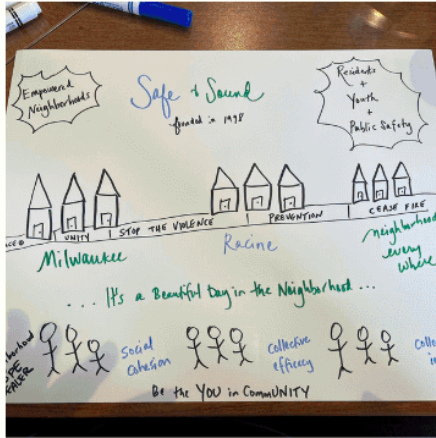 Empowered
Neighborhoods
Safe + Sound
founded in 1998
Residents
+
Youth
+
Public Safety
UNITY
STOP THE VIOLENCE
PREVENTION
CEASE FIRE
Milwaukee
Racine
neighborhoods
every
where
... It's a Beautiful Day in the Neighborhood ...
Social
Cohesion
collective
efficacy
Be the YOU in CommUNITY